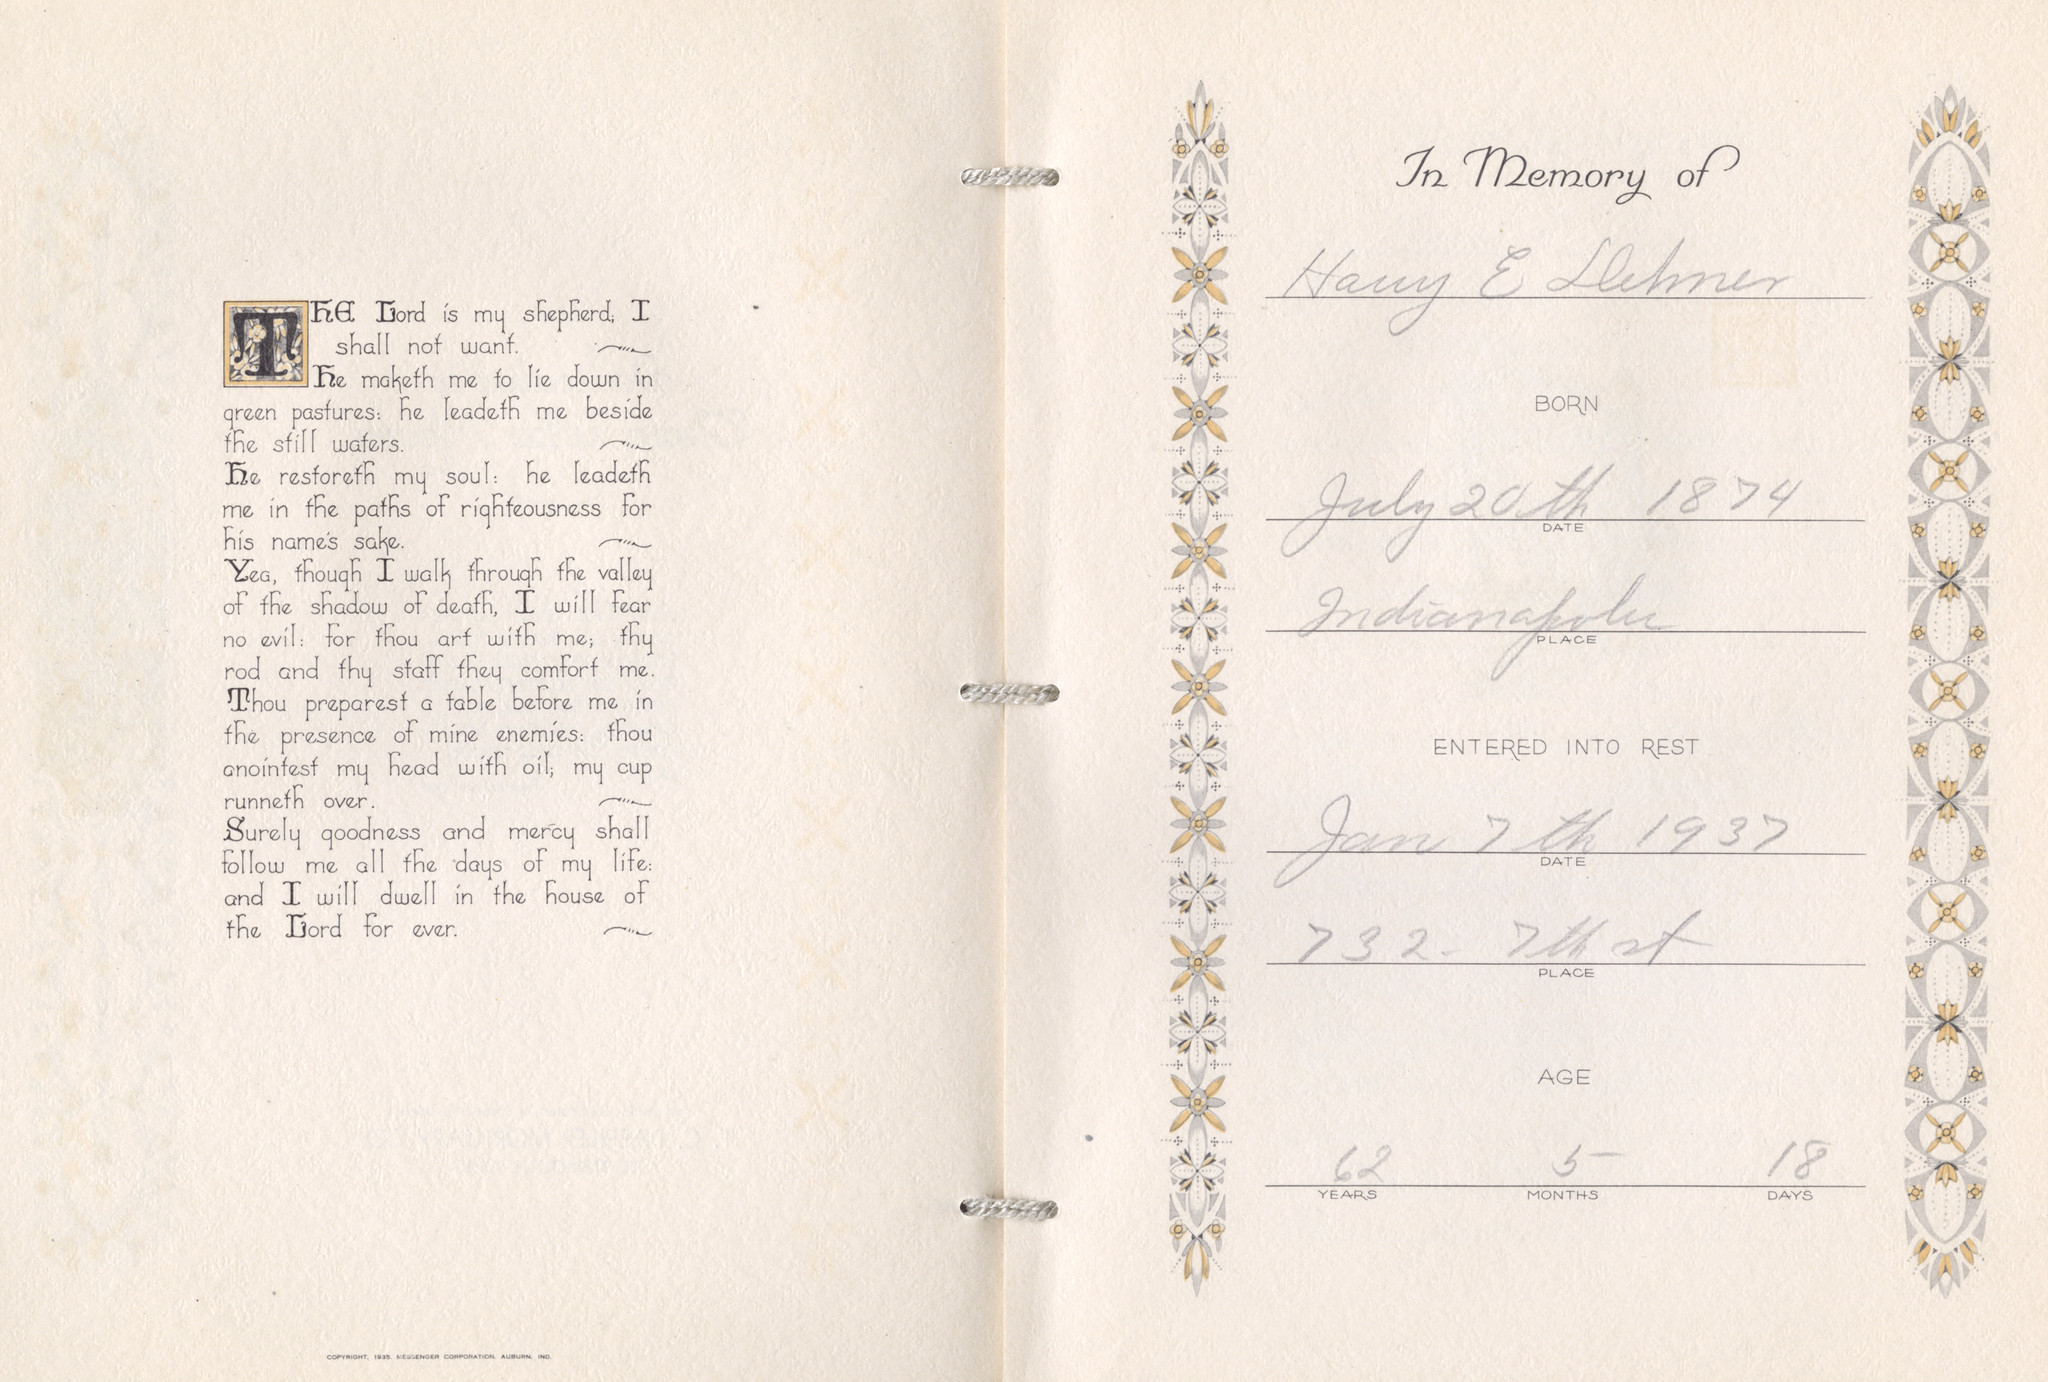 THE Lord is my shepherd; I
shall not want.
He maketh me to lie down in
green pastures: he leadeth me beside
the still waters.
He restoreth my soul: he leadeth
me in the paths of righteousness for
his name's sake.
Yea, though I walk through the valley
of the shadow of death, I will fear
no evil: for thou art with me; thy
rod and thy staff they comfort me.
Thou preparest a table before me in
the presence of mine enemies: thou
anointest my head with oil; my cup
runneth over.
Surely goodness and mercy shall
follow me all the days of my life:
and I will dwell in the house of
the Lord for ever.
COPYRIGHT, 1935, MESSENGER CORPORATION, AUBURN, IND.
In Memory of
Harry E
BORN
July 20th 1874
DATE
Indianapolis
PLACE
ENTERED INTO REST
Jan 7th 1937
DATE
732 - 7th st
PLACE
AGE
62 5 18
YEARS MONTHS DAYS